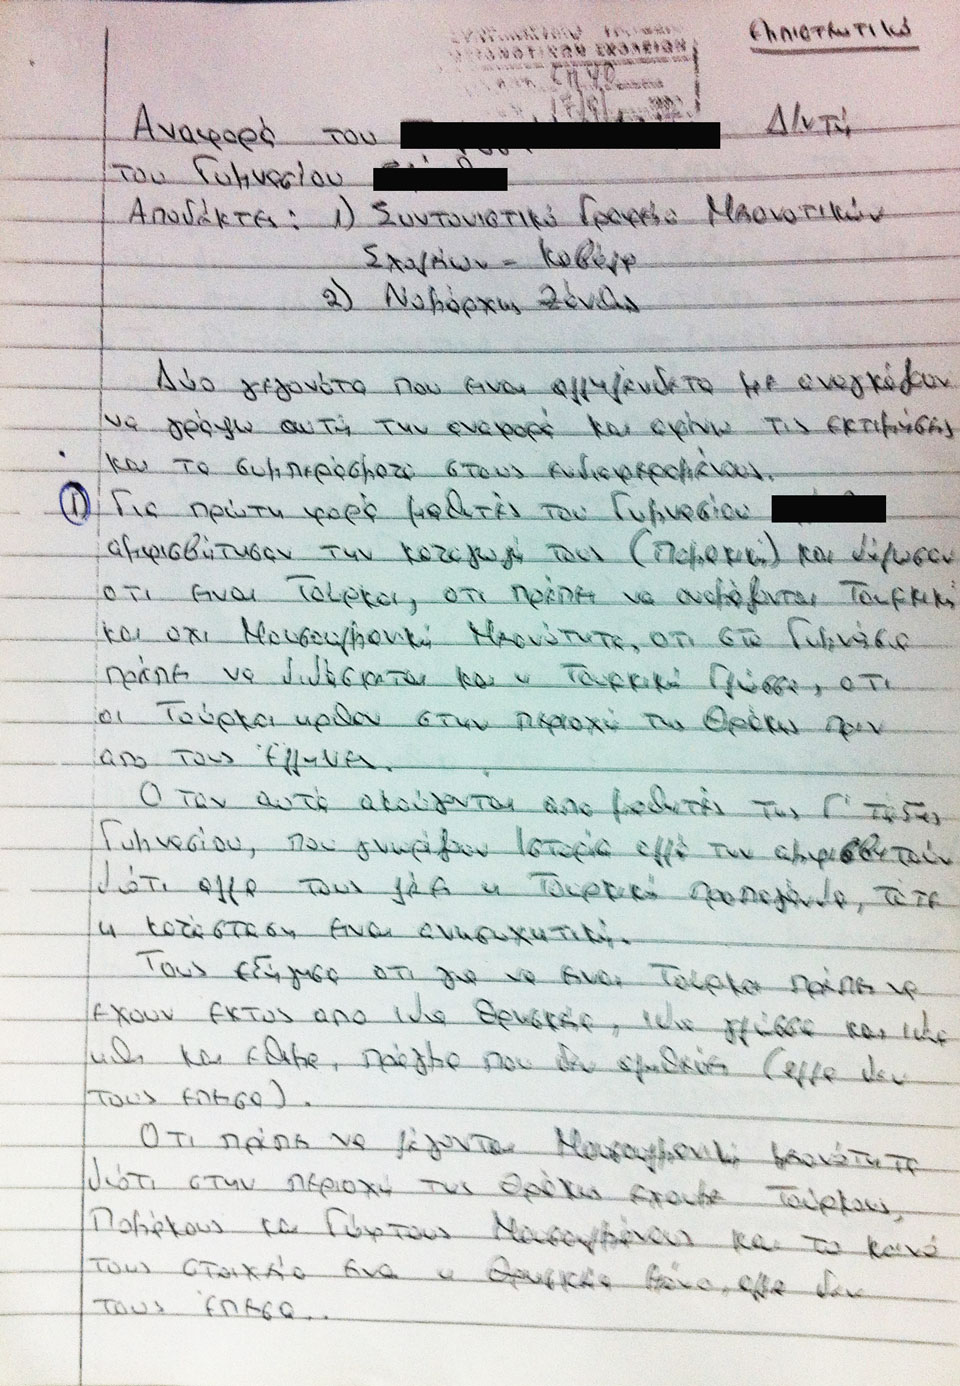 εμπιστευτικό
ΜΕΙΟΝΟΤΙΚΩΝ ΣΧΟΛΕΙΩΝ
Αναφορά του Δ/ντή
του Γυμνασίου
Αποδέκτες: 1) Συντονιστικό Γραφείο Μειονοτικών
Σχολείων - Καβάλα
2) Νομάρχης Ξάνθης
Δύο γεγονότα που είναι αλληλένδετα με αναγκάζουν
να γράψω αυτή την αναφορά και αφήνω τις εκτιμήσεις
και τα συμπεράσματα στους ενδιαφερομένους.
① Για πρώτη φορά μαθητές του Γυμνασίου
αμφισβήτησαν την καταγωγή τους (Πομακική) και δήλωσαν
ότι είναι Τούρκοι, ότι πρέπει να ονομάζονται Τουρκική
και όχι Μουσουλμανική Μειονότητα, ότι στο Γυμνάσιο
πρέπει να διδάσκεται και η Τουρκική Γλώσσα, ότι
οι Τούρκοι ήρθαν στην περιοχή της Θράκης πριν
απο τους Έλληνες.
Οταν αυτά ακούγονται απο μαθητές της Γ' τάξης
Γυμνασίου, που γνωρίζουν Ιστορία αλλά την αμφισβητούν
διότι άλλα τους λέει η Τουρκική προπαγάνδα, τότε
η κατάσταση είναι ανησυχητική.
Τους εξήγησα ότι για να είναι Τούρκοι πρέπει να
έχουν εκτός απο ίδια θρησκεία, ίδια γλώσσα και ίδια
ήθη και έθιμα, πράγμα που δεν αληθεύει (αλλά δεν
τους έπεισα).
Οτι πρέπει να λέγονται Μουσουλμανική μειονότητα
διότι στην περιοχή της Θράκης έχουμε Τούρκους,
Πομάκους και Γύφτους Μουσουλμάνους και το κοινό
τους στοιχείο είναι η θρησκεία μόνο, αλλά δεν
τους έπεισα..